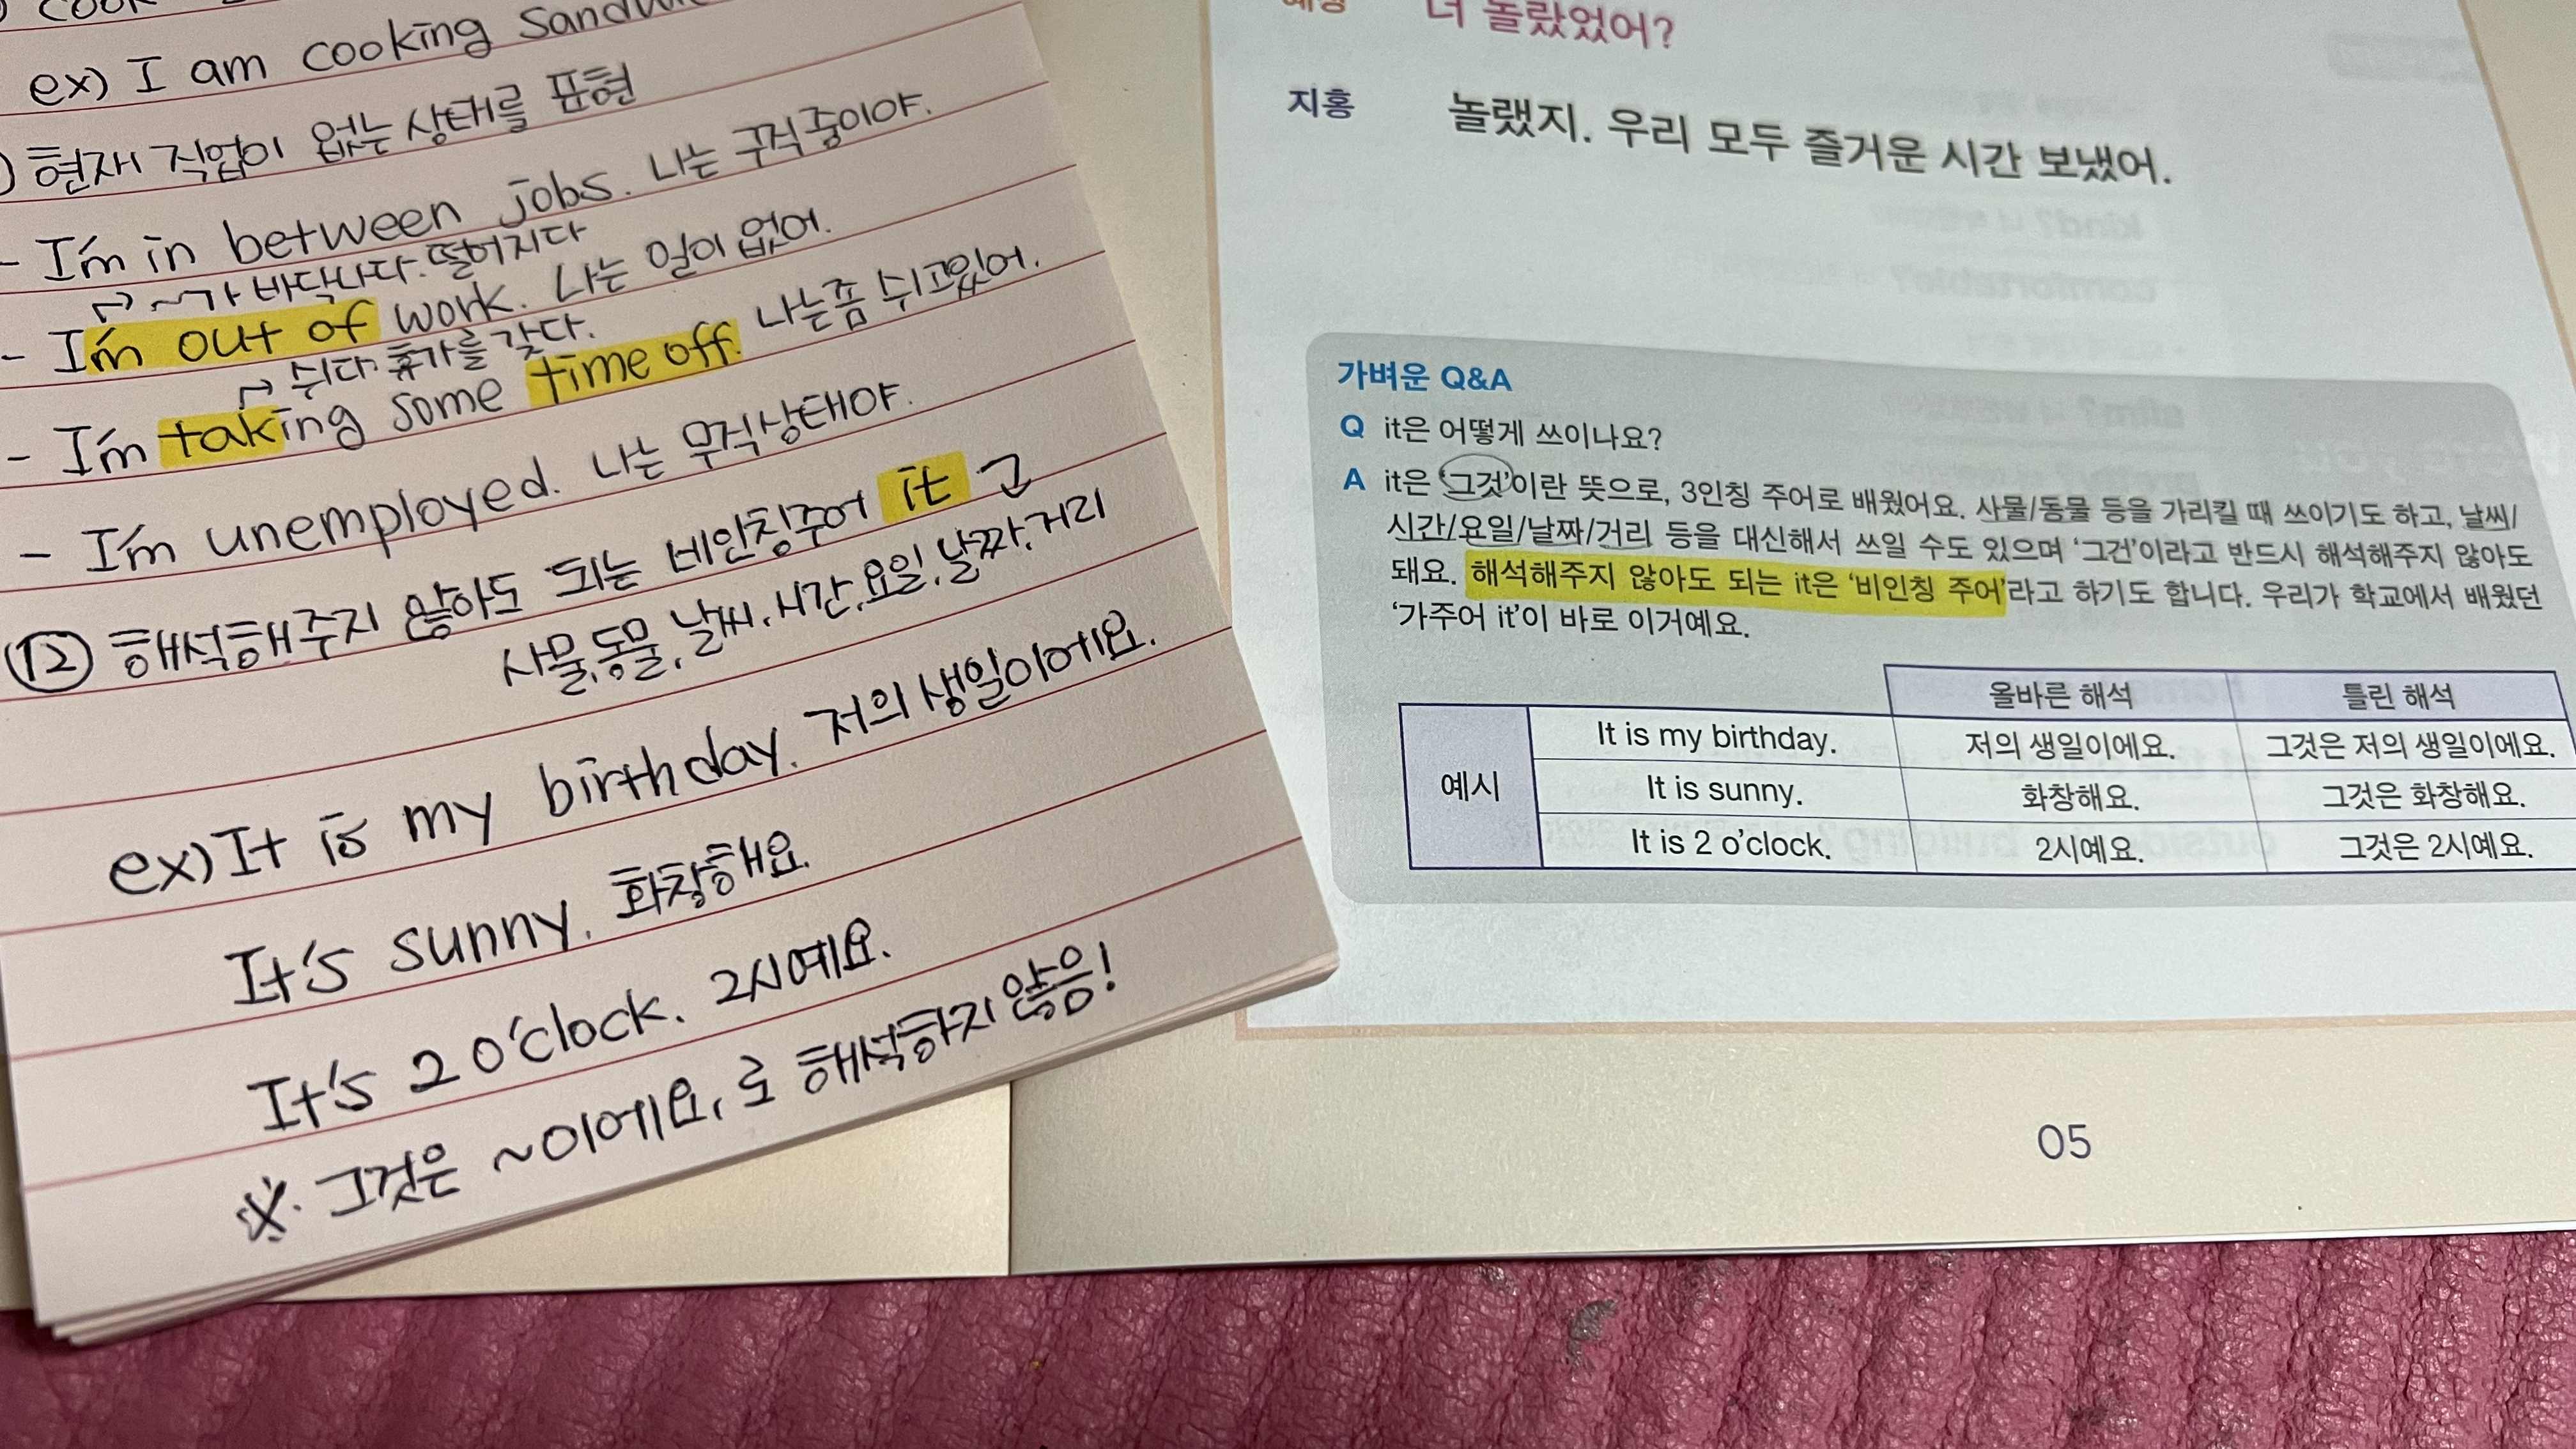 ex) I am cooking
) 현재 직업이 없는 상태를 표현
- I'm in between jobs. 나는 구직중이야.
→ ~가 바닥나다. 떨어지다
- I'm out of work. 나는 일이 없어.
→ 쉬다 휴가를 갖다.
- I'm taking some time off. 나는 좀 쉬고있어.
- I'm unemployed. 나는 무직상태야.
⑫ 해석해주지 않아도 되는 비인칭주어 it
사물, 동물, 날씨, 시간, 요일, 날짜, 거리
ex) It is my birthday. 저의 생일이에요.
It's sunny. 화창해요.
It's 2 o'clock. 2시예요.
※. 그것은 ~이에요, 로 해석하지 않음!
너 놀랐었어?
지홍 놀랬지. 우리 모두 즐거운 시간 보냈어.
가벼운 Q&A
Q it은 어떻게 쓰이나요?
A it은 '그것'이란 뜻으로, 3인칭 주어로 배웠어요. 사물/동물 등을 가리킬 때 쓰이기도 하고, 날씨/
시간/요일/날짜/거리 등을 대신해서 쓰일 수도 있으며 '그건'이라고 반드시 해석해주지 않아도
돼요. 해석해주지 않아도 되는 it은 '비인칭 주어'라고 하기도 합니다. 우리가 학교에서 배웠던
'가주어 it'이 바로 이거예요.
올바른 해석 틀린 해석
예시
It is my birthday. 저의 생일이에요. 그것은 저의 생일이에요.
It is sunny. 화창해요. 그것은 화창해요.
It is 2 o'clock. 2시예요. 그것은 2시예요.
05